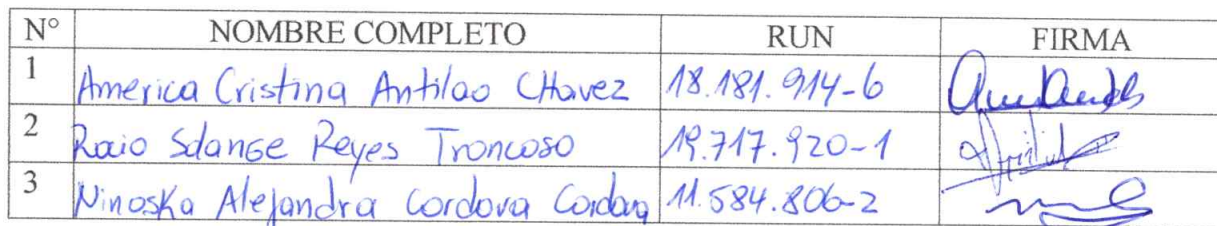 N° NOMBRE COMPLETO RUN FIRMA
1 America Cristina Antilao CHavez 18.181.914-6
2 Rocio Solange Reyes Troncoso 19.717.920-1
3 Ninoska Alejandra Cordova Cordova 11.584.806-2